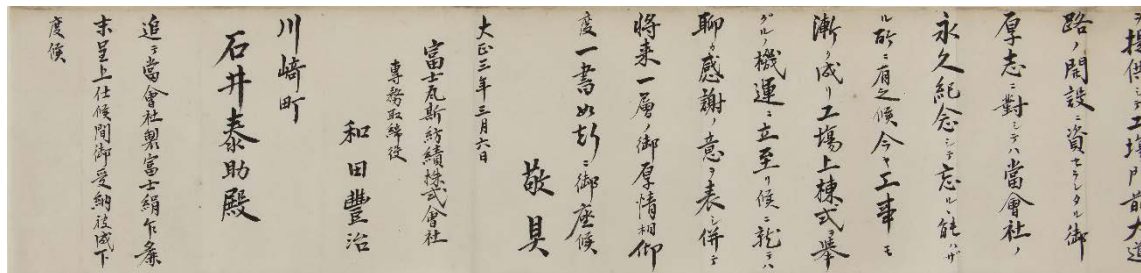 ヲ提供シテ工場門前大道
路ノ開設ニ資セラレタル御
厚志ニ對シテハ當會社ノ
永久紀念シテ忘ルヽ能ハザ
ル所ニ有之候今ヤ工事モ
漸ク成リ工場上棟式ヲ擧
グルノ機運ニ立至リ候ニ就テハ
聊カ感謝ノ意ヲ表シ併テ
将来一層ノ御厚情相仰
度一書如斯ニ御座候
敬具
大正三年三月六日
富士瓦斯紡績株式會社
専務取締役
和田豐治
川﨑町
石井泰助殿
追テ當會社製富士絹乍麁
末呈上仕候間御受納被成下
度候